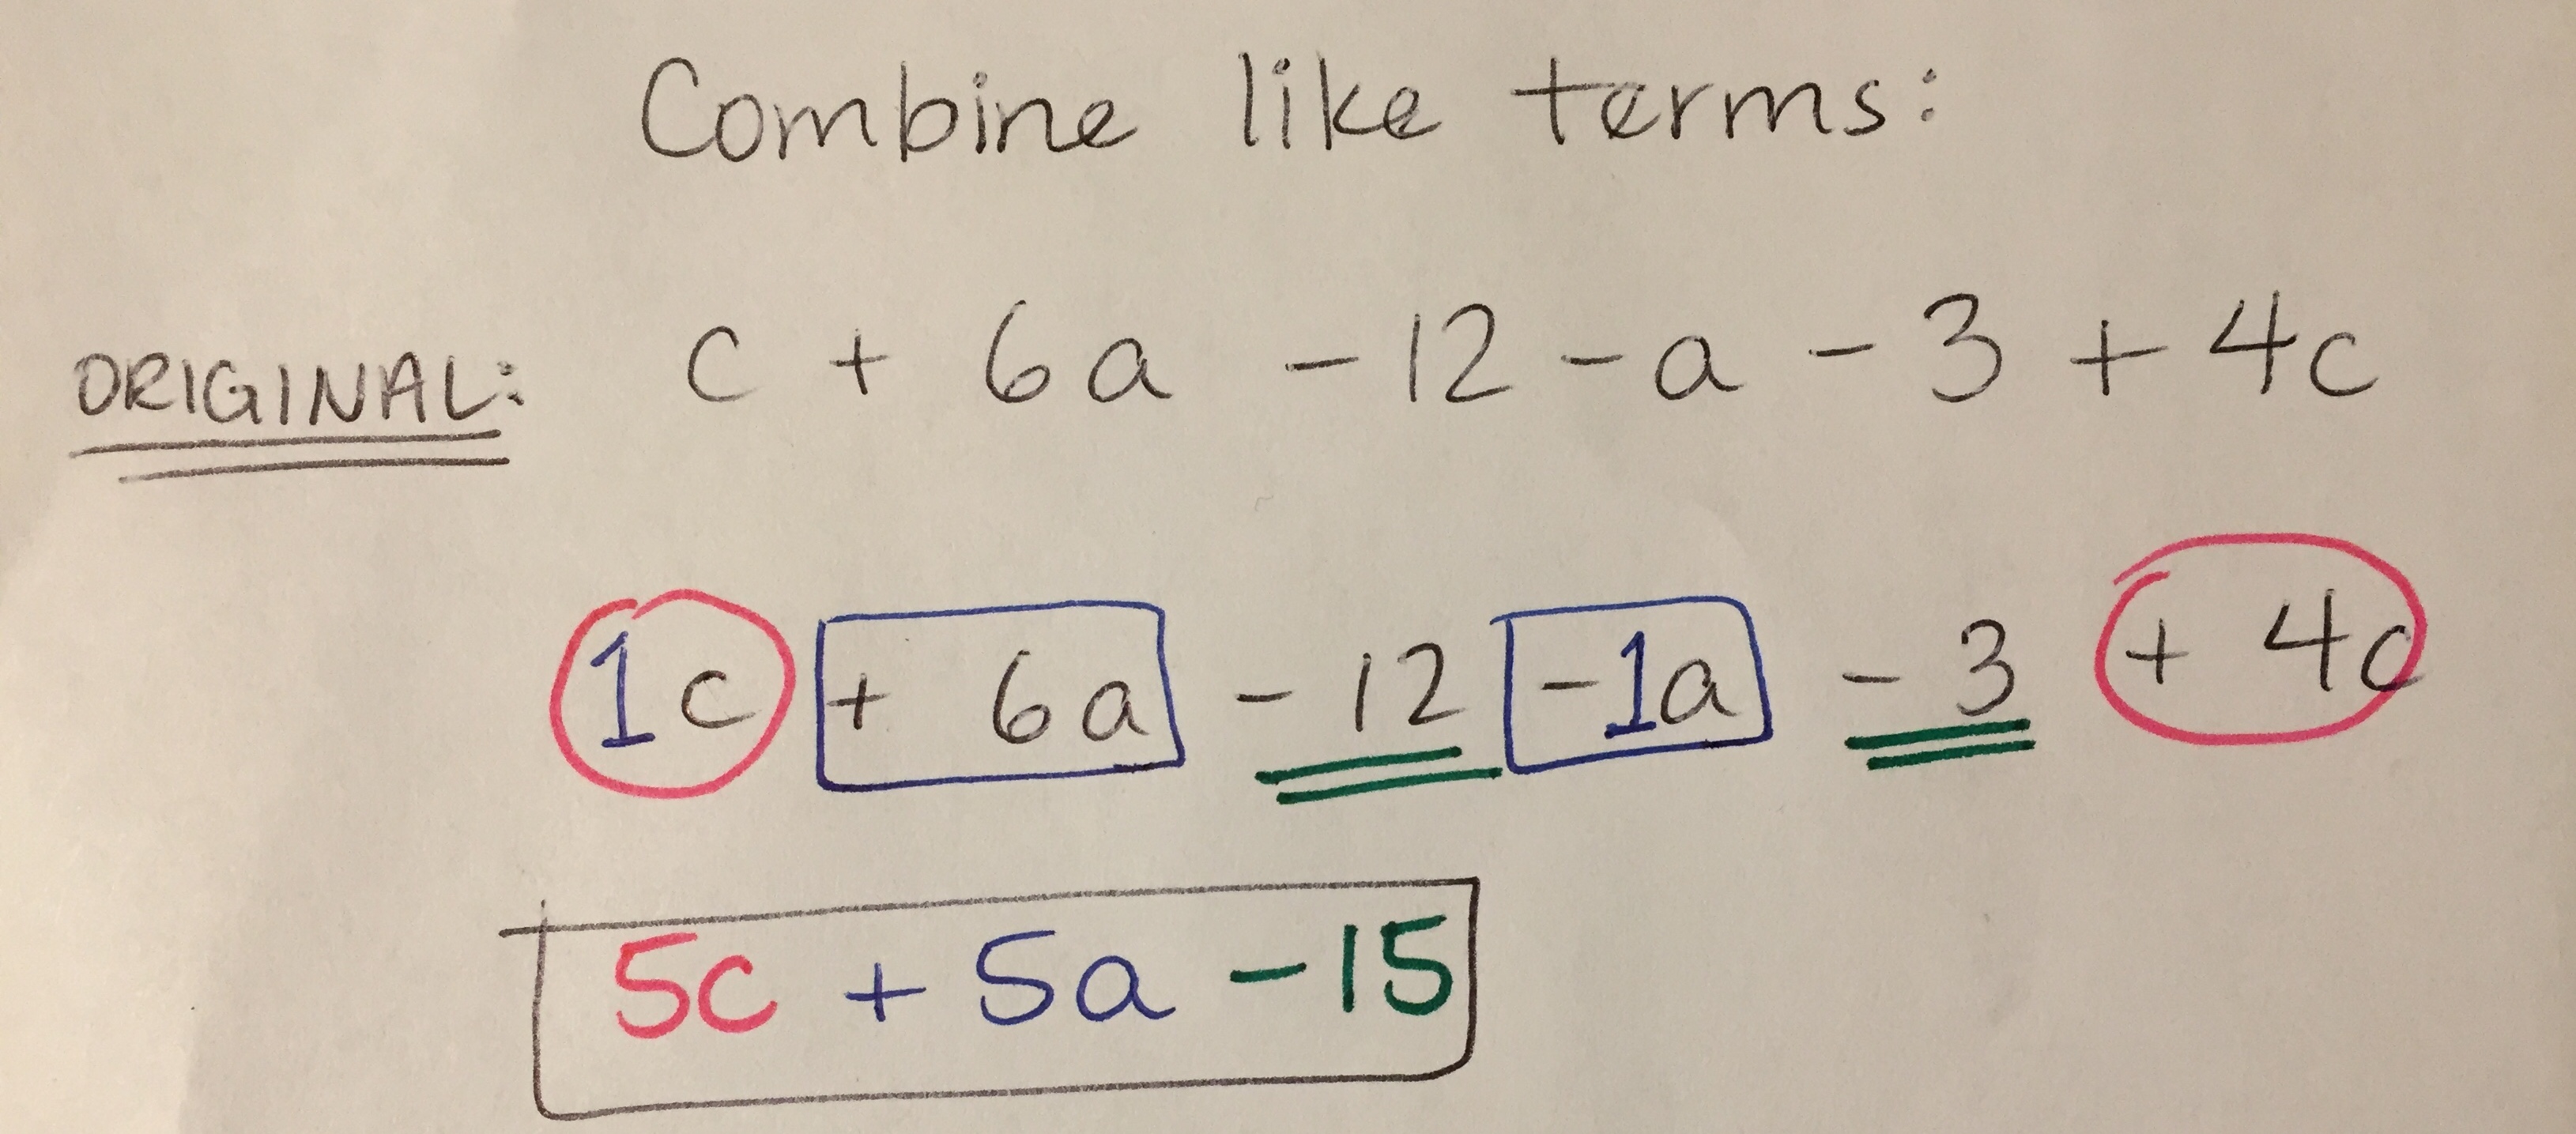 Combine like terms:
ORIGINAL: c + 6a - 12 - a - 3 + 4c
1c + 6a - 12 - 1a - 3 + 4c
5c + 5a - 15